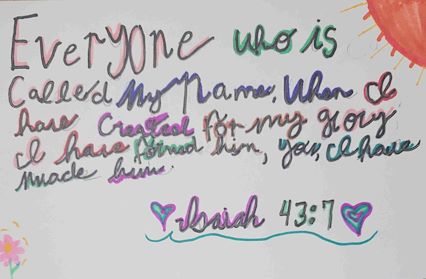 Everyone who is
Called My Name, When I
have Created for my glory
I have formed him, yea, I have
made him.
Isaiah 43:7